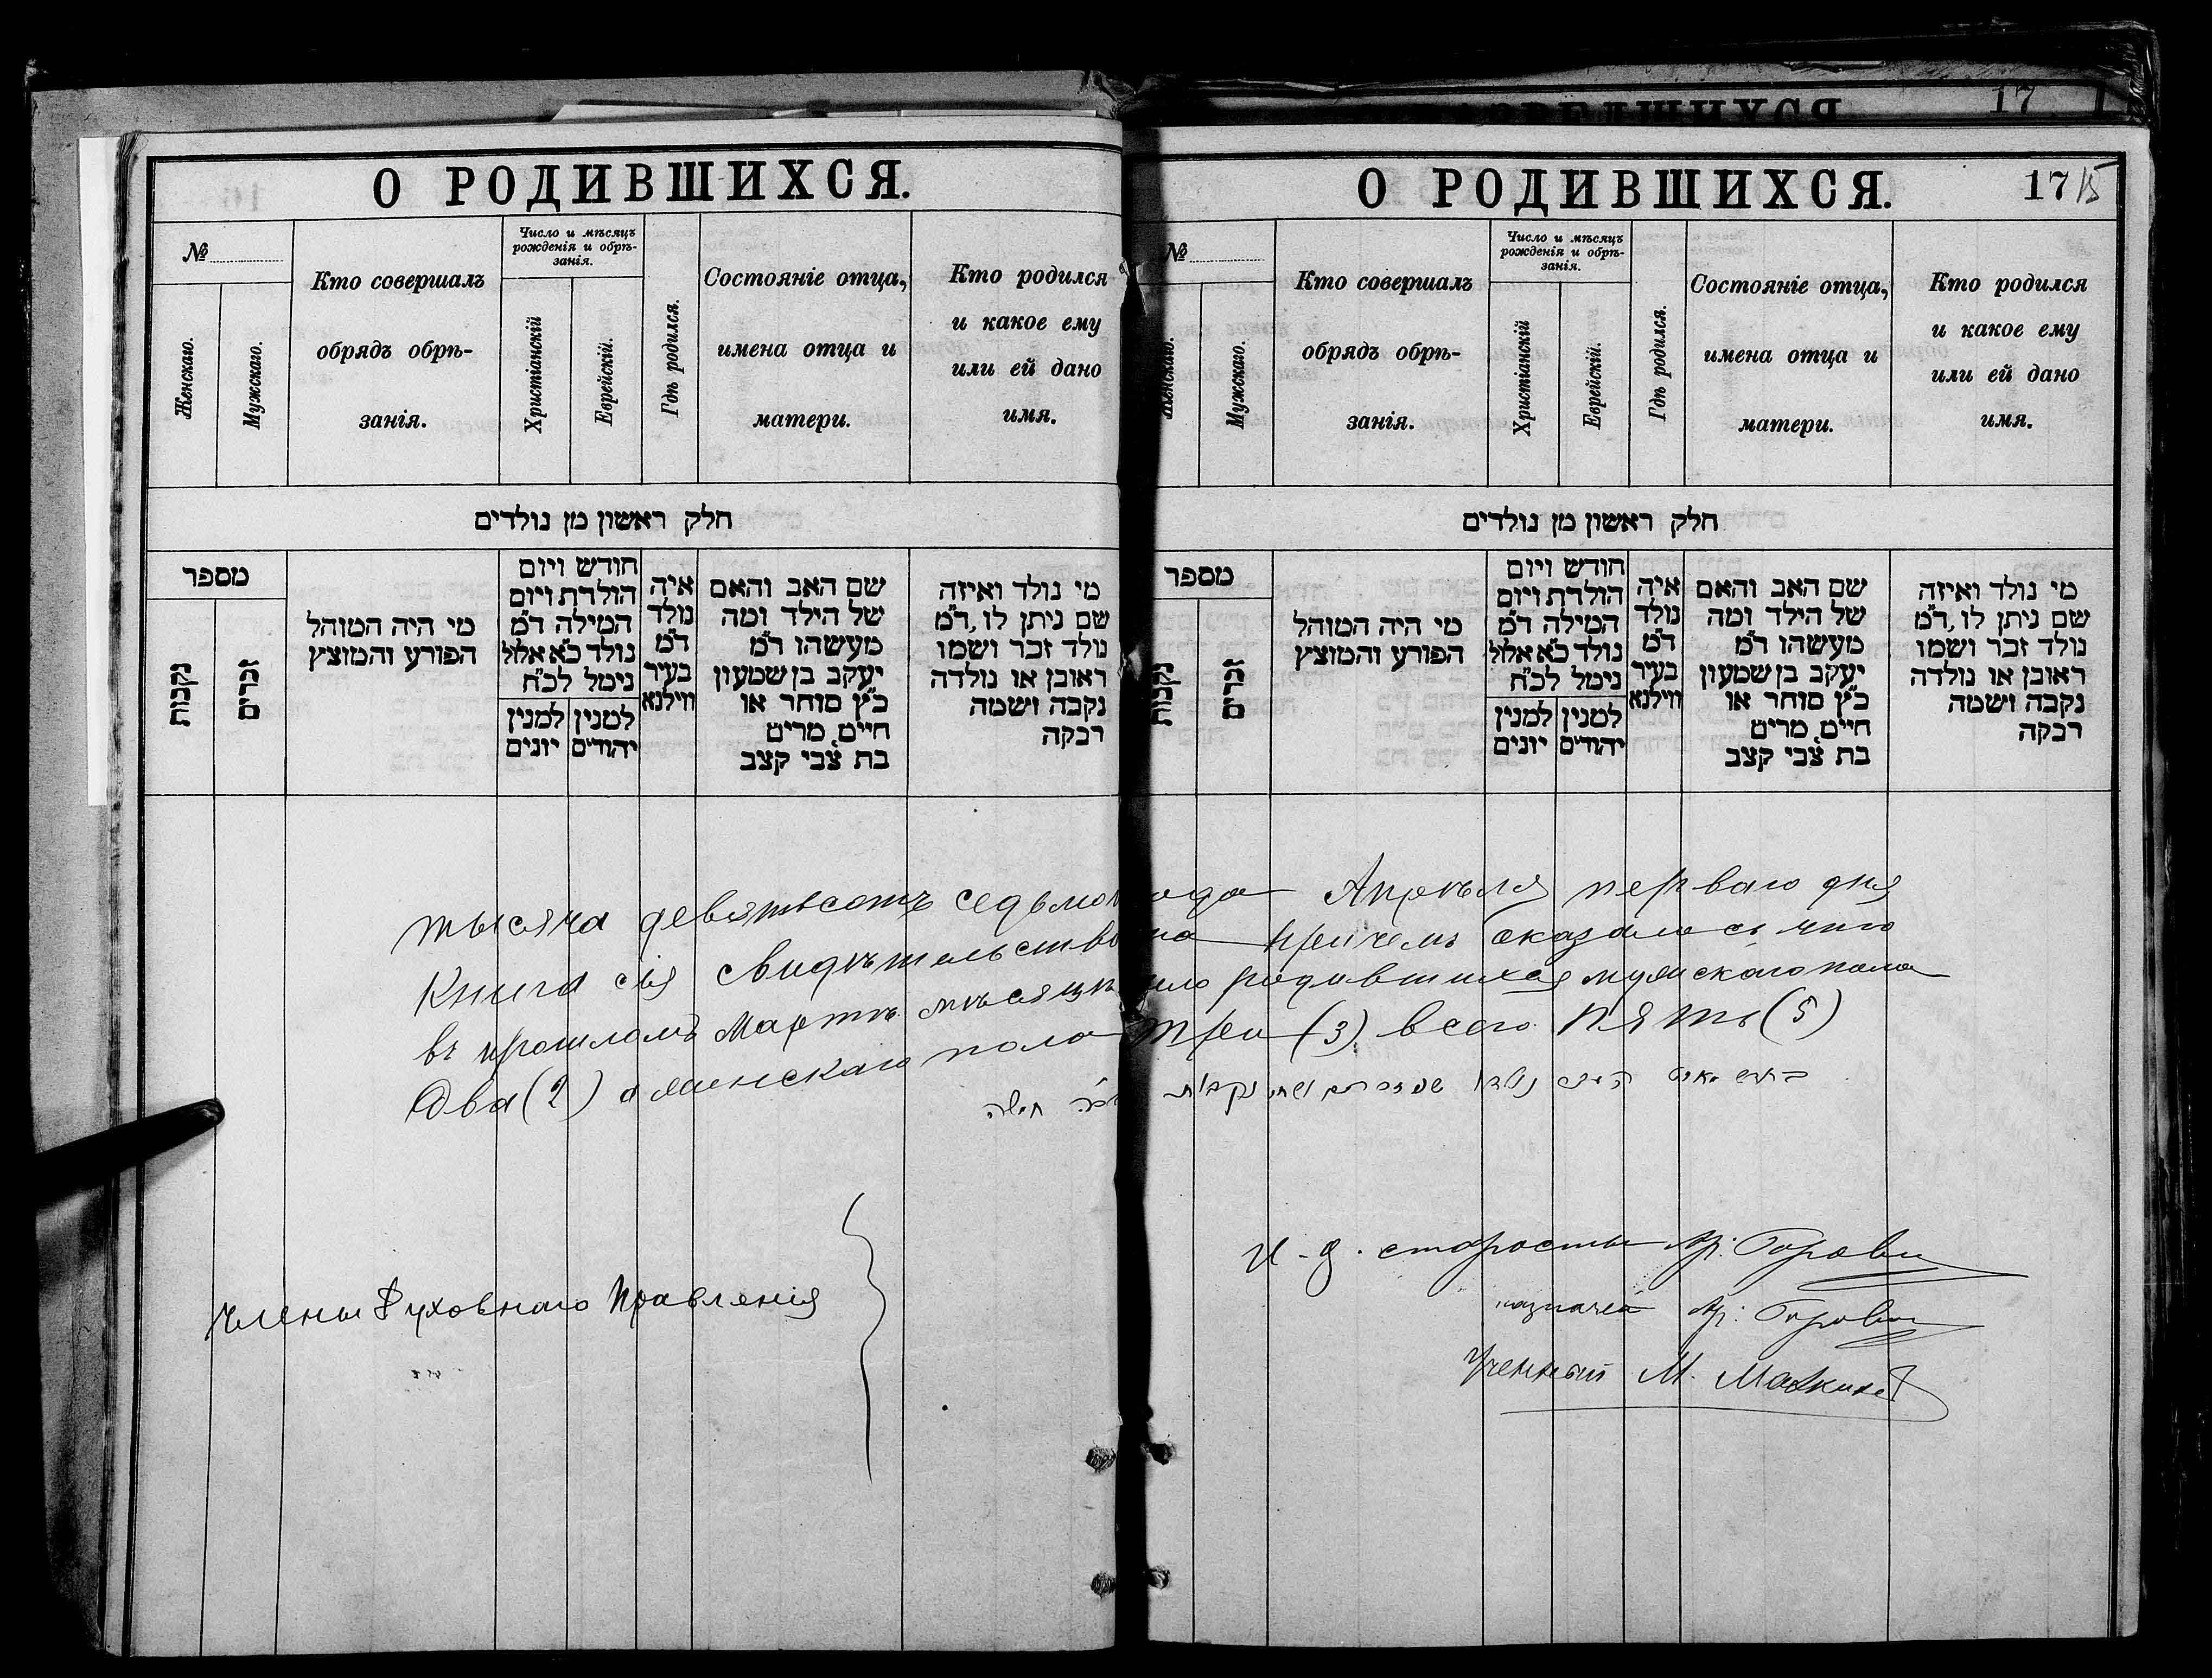 О РОДИВШИХСЯ.
№
Женскаго.
Мужскаго.
Кто совершалъ
обрядъ обрѣ-
занія.
Число и мѣсяцъ
рожденія и обрѣ-
занія.
Христіанскій
Еврейскій.
Гдѣ родился.
Состояніе отца,
имена отца и
матери.
Кто родился
и какое ему
или ей дано
имя.
חלק ראשון מן נולדים
מספר
נקבות
זכרים
מי היה המוהל
הפורע והמוצץ
חודש ויום
הולדת ויום
המילה ד״מ
נולד כ״א אלול
נימל לכ״ח
למנין יונים
למנין יהודים
איה
נולד
ד״מ
בעיר
ווילנא
שם האב והאם
של הילד ומה
מעשהו ד״מ
יעקב בן שמעון
כ״ץ סוחר או
חיים, מרים
בת צבי קצב
מי נולד ואיזה
שם ניתן לו, ד״מ
נולד זכר ושמו
ראובן או נולדה
נקבה ושמה
רבקה
17
О РОДИВШИХСЯ.
17 15
№
Женскаго.
Мужскаго.
Кто совершалъ
обрядъ обрѣ-
занія.
Число и мѣсяцъ
рожденія и обрѣ-
занія.
Христіанскій
Еврейскій.
Гдѣ родился.
Состояніе отца,
имена отца и
матери.
Кто родился
и какое ему
или ей дано
имя.
חלק ראשון מן נולדים
מספר
נקבות
זכרים
מי היה המוהל
הפורע והמוצץ
חודש ויום
הולדת ויום
המילה ד״מ
נולד כ״א אלול
נימל לכ״ח
למנין יונים
למנין יהודים
איה
נולד
ד״מ
בעיר
ווילנא
שם האב והאם
של הילד ומה
מעשהו ד״מ
יעקב בן שמעון
כ״ץ סוחר או
חיים, מרים
בת צבי קצב
מי נולד ואיזה
שם ניתן לו, ד״מ
נולד זכר ושמו
ראובן או נולדה
נקבה ושמה
רבקה
тысяча девятьсотъ седьмого года Апрѣля перваго дня
Книга сія свидѣтельствована причемъ оказалось что
въ прошломъ Мартѣ мѣсяцѣ было родившихся мужскаго пола
два (2) а женскаго пола три (3) всего пять (5)
Члены Духовнаго Правленія
И. д. старосты
казначей
Ученный М.